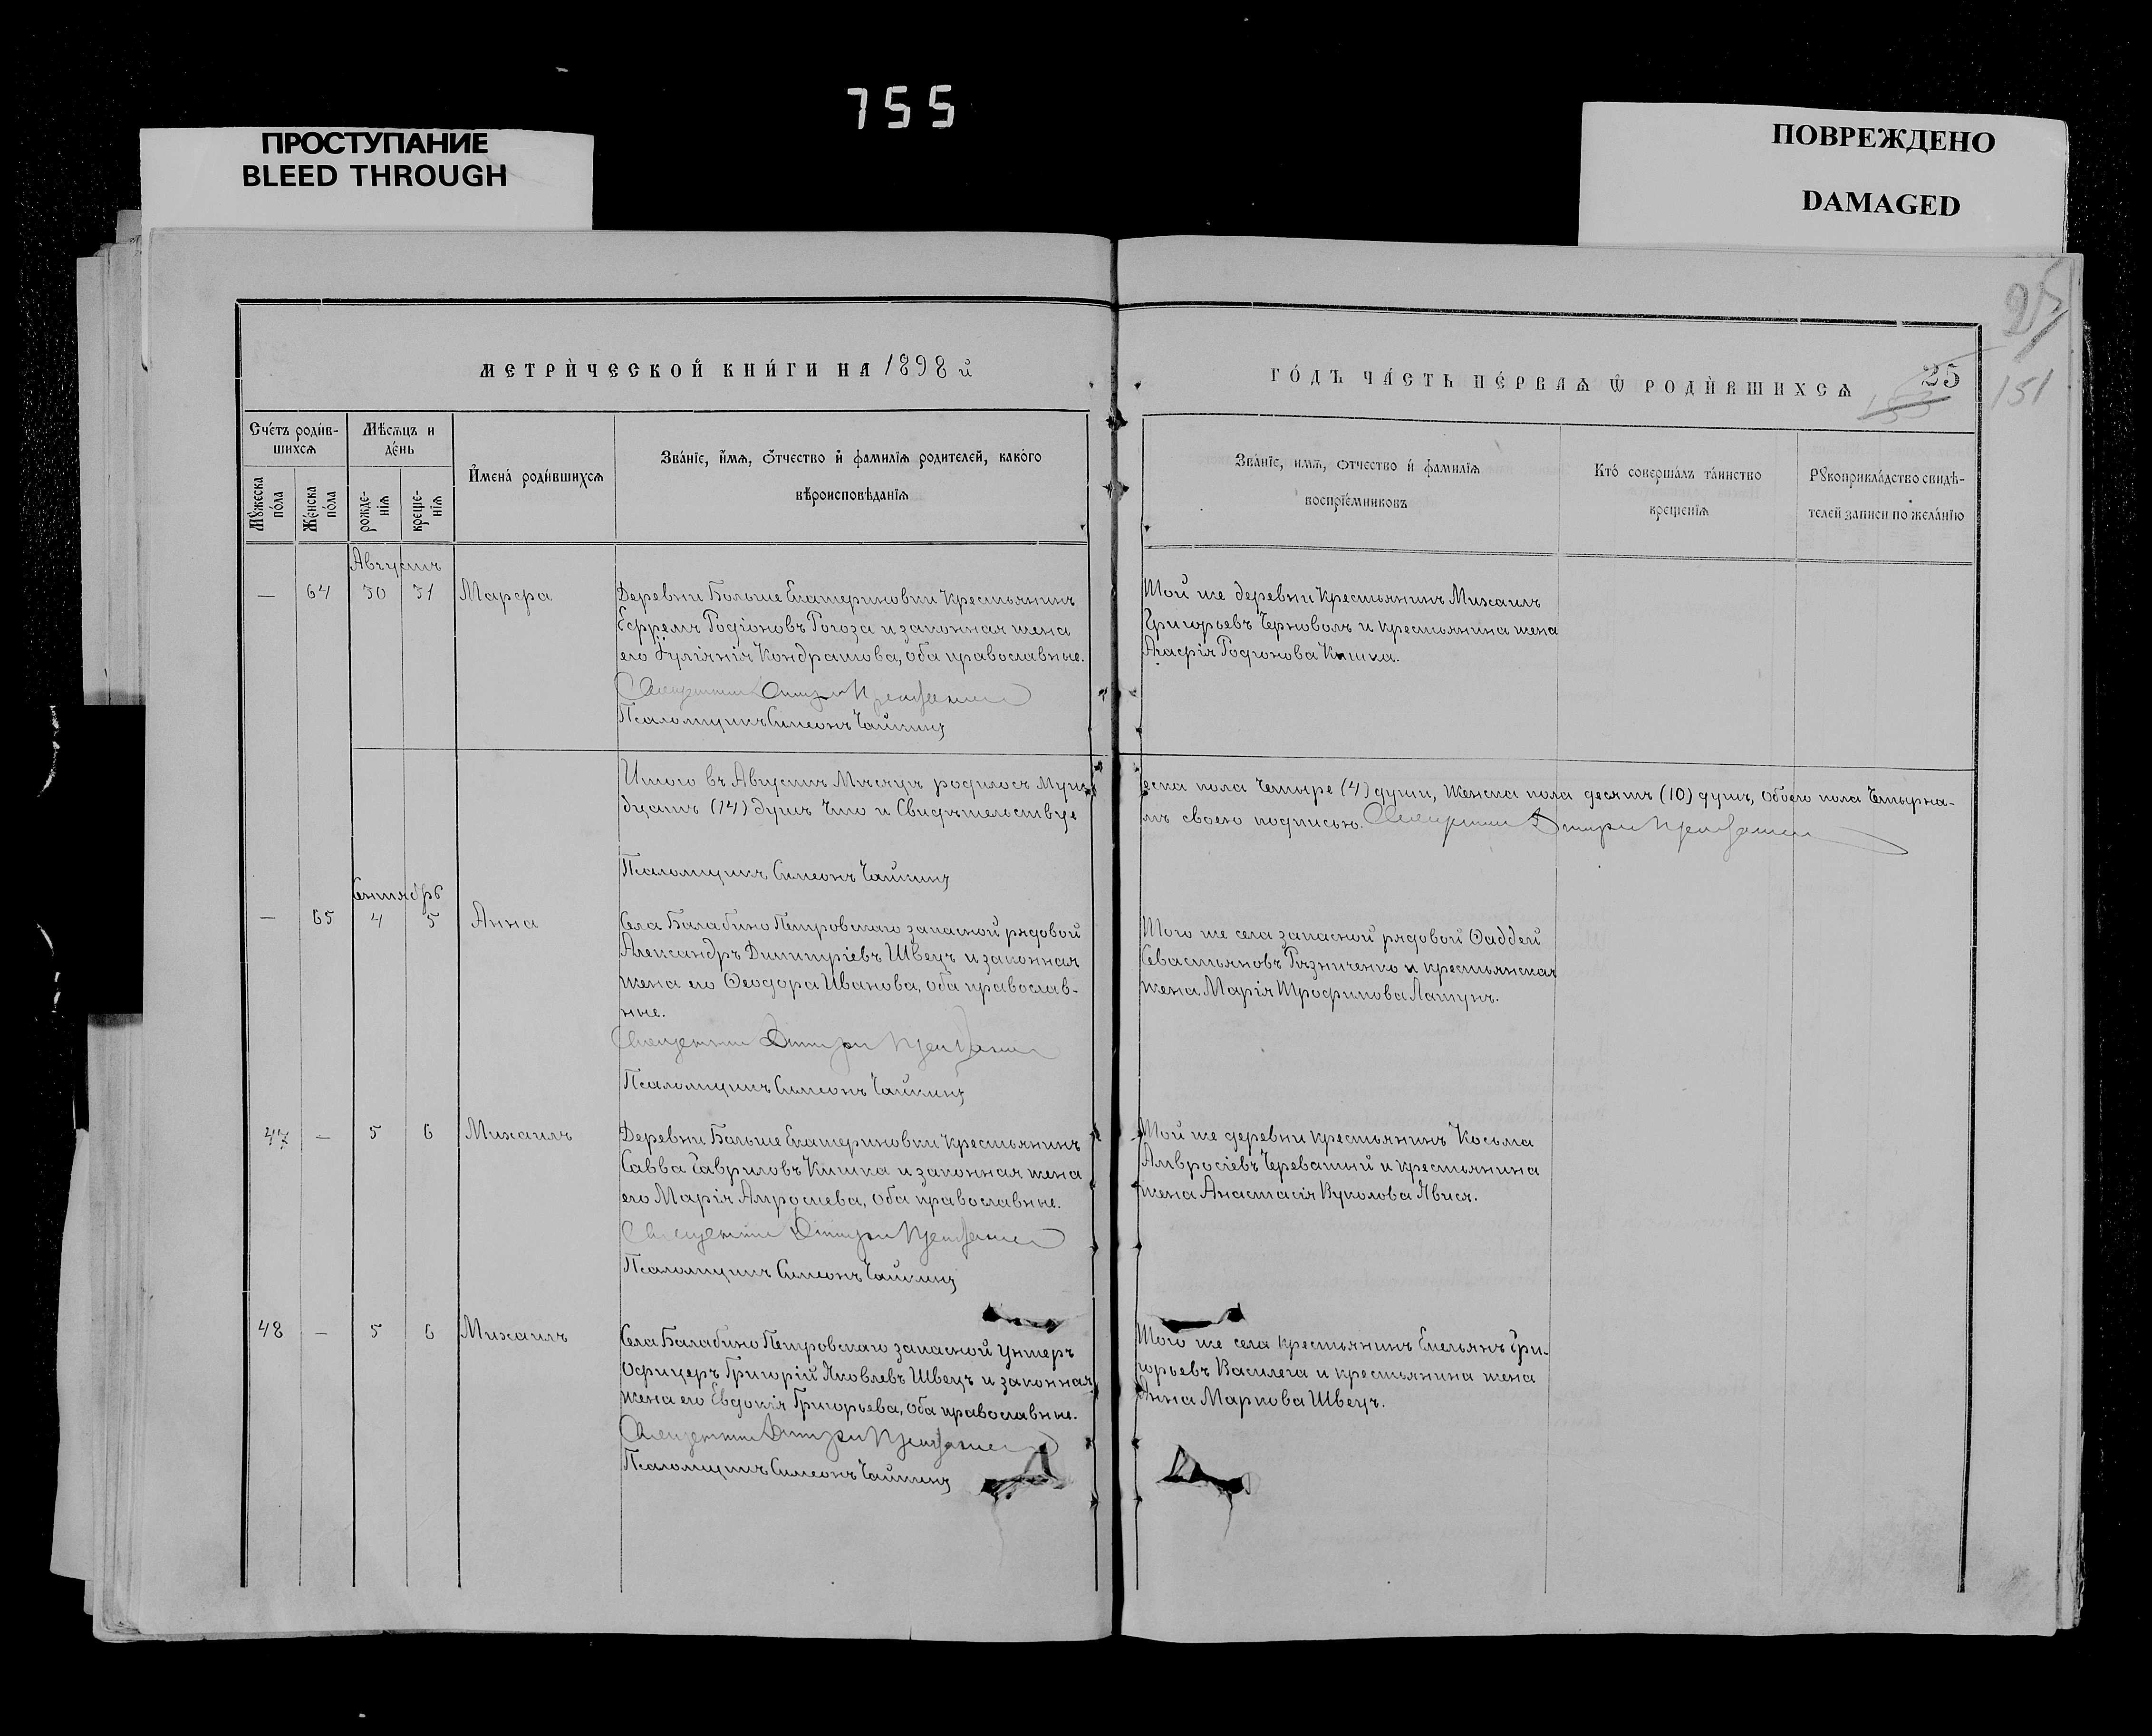 755
ПРОСТУПАНИЕ
BLEED THROUGH
ПОВРЕЖДЕНО
DAMAGED
25
151
МЕТРИ́ЧЕСКОЙ КНИ́ГИ НА 1898 й
ГО́ДЪ ЧА́СТЬ ПЕ́РВАѦ Ѡ҆ РОДИ́ВШИХСѦ 25
Сче́тъ роди́в-
шихсѧ
Мѣ́сѧцъ и
де́нь
Мꙋ́жеска
по́ла
Же́нска
по́ла
рожде́-
нїѧ
креще́-
нїѧ
И҆мена̀ роди́вшихсѧ
Зва́нїе, и҆́мѧ, ѻ҆́тчество и҆ фами́лїѧ роди́телей, како́го
вѣроисповѣ́данїѧ
Зва́нїе, и҆мѧ, ѻ҆тчество и҆ фами́лїѧ
воспрїе́мниковъ
Кто́ соверша́лъ та́инство
креще́нїѧ
Рꙋкоприкла́дство свидѣ́-
телей записи по жела́нїю
Августъ
— 64 30 31 Марѳа
Деревни Больше Екатериновки крестьянинъ
Ефремъ Родіоновъ Рогоза и законная жена
его Іуліанія Кондратова, оба православные.
Священникъ Димитрій
Псаломщикъ Симеонъ Чайкинъ
Той же деревни крестьянинъ Михаилъ
Григорьевъ Черноволъ и крестьянина жена
Агафія Родіонова Кишка.
Итого въ Августѣ Мѣсяцѣ родилось Муж
еска пола Четыре (4) души, Женска пола десять (10) душъ, Обоего пола Четырна-
дцать (14) душъ Что и Свидѣтельствуе
мъ своею подписью. Священникъ Димитрій
Псаломщикъ Симеонъ Чайкинъ
Сентябрь
— 65 4 5 Анна
Села Балабино Петровскаго запасной рядовой
Александръ Димитріевъ Швецъ и законная
жена его Ѳеодора Иванова, оба православ-
ные.
Священникъ Димитрій
Псаломщикъ Симеонъ Чайкинъ
Того же села запасной рядовой Ѳаддей
Севастьяновъ Рѣзниченко и крестьянская
жена Марія Трофимова Латунъ.
47 — 5 6 Михаилъ
Деревни Больше Екатериновки крестьянинъ
Савва Гавриловъ Кишка и законная жена
его Марія Амросіева, оба православные.
Священникъ Димитрій
Псаломщикъ Симеонъ Чайкинъ
Той же деревни крестьянинъ Косьма
Амвросіевъ Череватый и крестьянина
жена Анастасія Вуколова Явися.
48 — 5 6 Михаилъ
Села Балабино Петровскаго запасной унтеръ
Офицеръ Григорій Яковлевъ Швецъ и законная
жена его Евдокія Григорьева, оба православные.
Священникъ Димитрій
Псаломщикъ Симеонъ Чайкинъ
Того же села крестьянинъ Емельянъ Гри-
горьевъ Василега и крестьянина жена
Анна Маркова Швецъ.